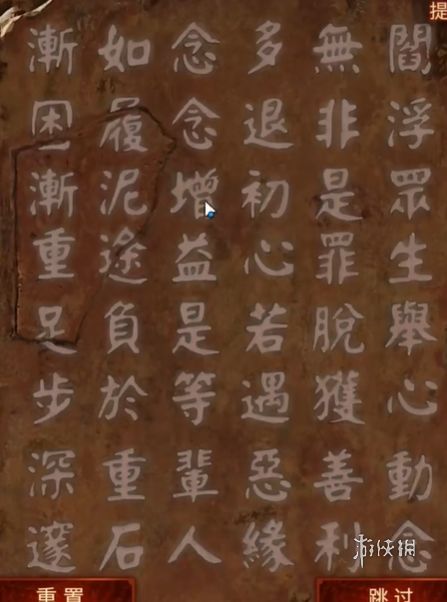 提
閻浮眾生舉心動念
無非是罪脫獲善利
多退初心若遇惡緣
念念增益是等輩人
如履泥途負於重石
漸困漸重足步深邃
游侠網
重置
跳过